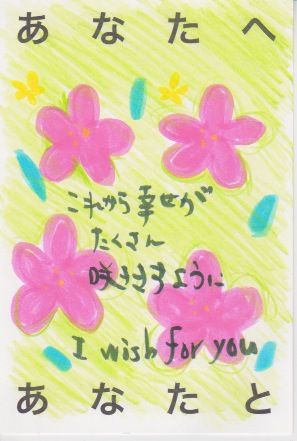 あなたへ
これから幸せが
たくさん
咲きますように
I wish for you
あなたと